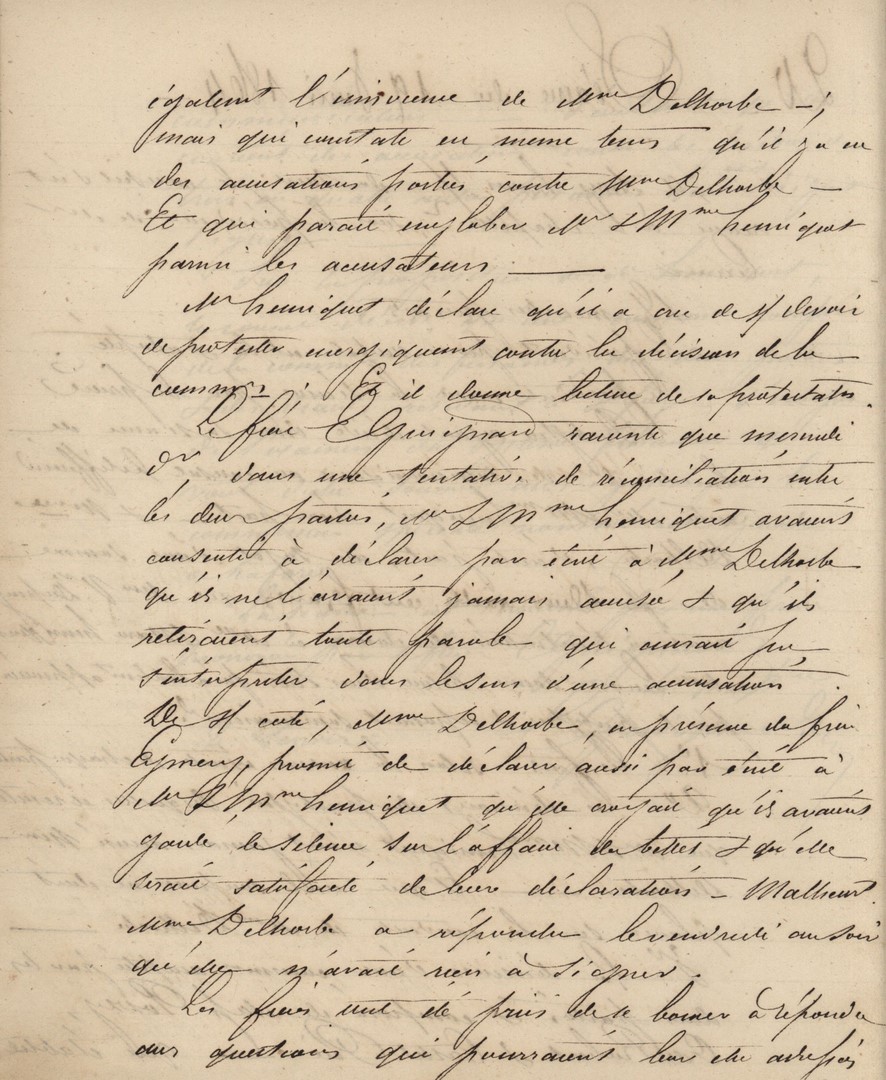 également l'innocence de Mme Delhorbe —;
mais qui constate en meme tems qu'il y a eu
des accusations portées contre Mme Delhorbe —
Et qui parait englober Mr & Mme henriquet
parmi les accusateurs. —
Mr henriquet déclare qu'il a cru de s/ devoir
de protester energiquemt contre la décision de la
common ; Et il donne lecture de sa protestatn.
Le frère E Guignard raconte que mercredi
dr, dans une tentative de réconciliation entre
les deux parties, Mr & Mme henriquet avaient
consenti à déclarer par écrit à Mme Delhorbe
qu'ils ne l'avaient jamais accusée & qu'ils
retiraient toute parole qui aurait pu
s'interpreter dans le sens d'une accusation.
De s/ coté, Mme Delhorbe, en présence du frère
Eymery, promit de déclarer aussi par écrit à
Mr & Mme henriquet qu'elle croyait qu'ils avaient
gardé le silence sur l'affaire du billet & qu'elle
serait satisfaite de leur déclaration — Malheurt
Mme Delhorbe a répondu le vendredi au soir
qu'elle n'avait rien à signer.
Les frères ont été priés de se borner à répondre
aux questions qui pourraient leur etre adressées